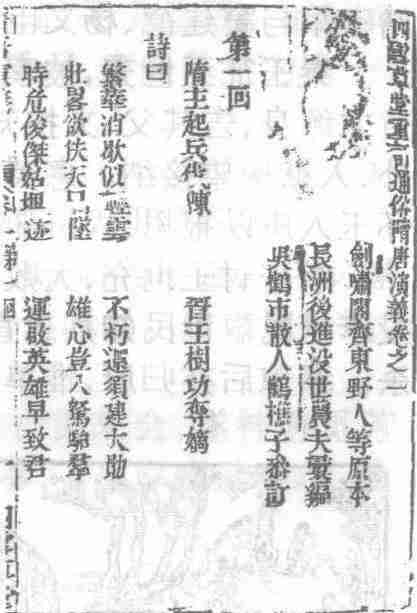 四雪草堂重訂通俗隋唐演義卷之一
劍嘯閣齊東野人等原本
長洲後進没世農夫彙編
吳鶴市散人鶴樵子叅訂
第一回
隋主起兵伐陳 晋王樹功奪嫡
詩曰
繁華消歇似輕雲 不朽還須建大勛
壯畧欲扶天日墜 雄心豈入駑駘羣
時危俊傑姑埋迹 運啟英雄早致君